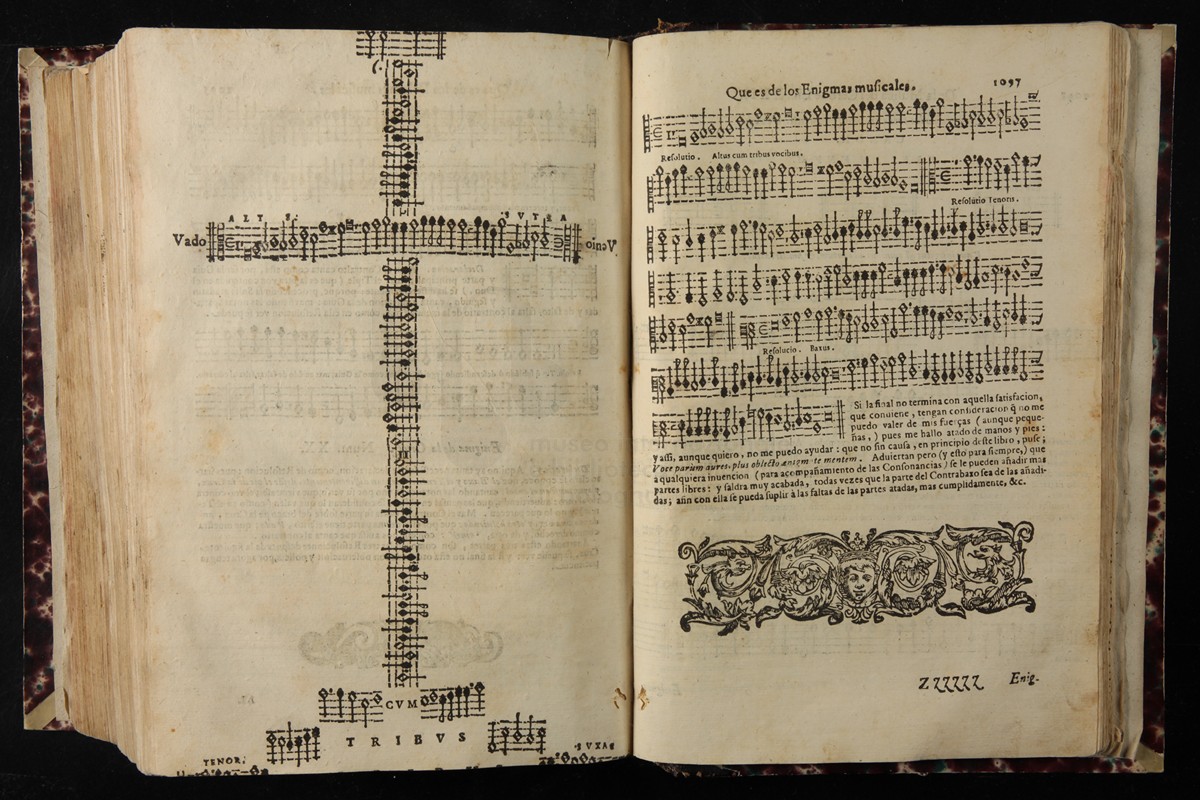 ALTUS.
Vado
CVM
TRIBVS
TENOR.
Que es de los Enigmas musicales.
1097
Resolutio. Altus cum tribus vocibus.
Resolutio Tenoris.
Resolucio. Baxus.
Si la final no termina con aquella satisfacion,
que conuiene, tengan consideracion q̃ no me
puedo valer de mis fuerças (aunque peque-
ñas,) pues me hallo atado de manos y pies:
y assi, aunque quiero, no me puedo ayudar: que no sin causa, en principio deste libro, puse;
Voce parum aures, plus oblecto ænigm-te mentem. Aduiertan pero (y esto para siempre,) que
a qualquiera inuencion (para acompañamiento de las Consonancias) se le pueden añadir mas
partes libres: y saldra muy acabada, todas vezes que la parte del Contrabaxo sea de las añadi-
das; aũn con ella se pueda suplir à las faltas de las partes atadas, mas cumplidamente, &c.
Z ZZZZZ
Enig-